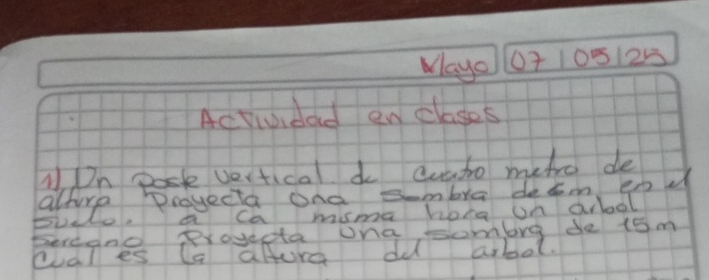 Mayo 07/05/25
Actividad en clases
1) Un poste vertical de cuatro metro de
altura Proyecta una sombra de 6m en el
suelo. a la misma hora un arbol
sercano Proyecta una sombra de 15m
cual es la altura del arbol.